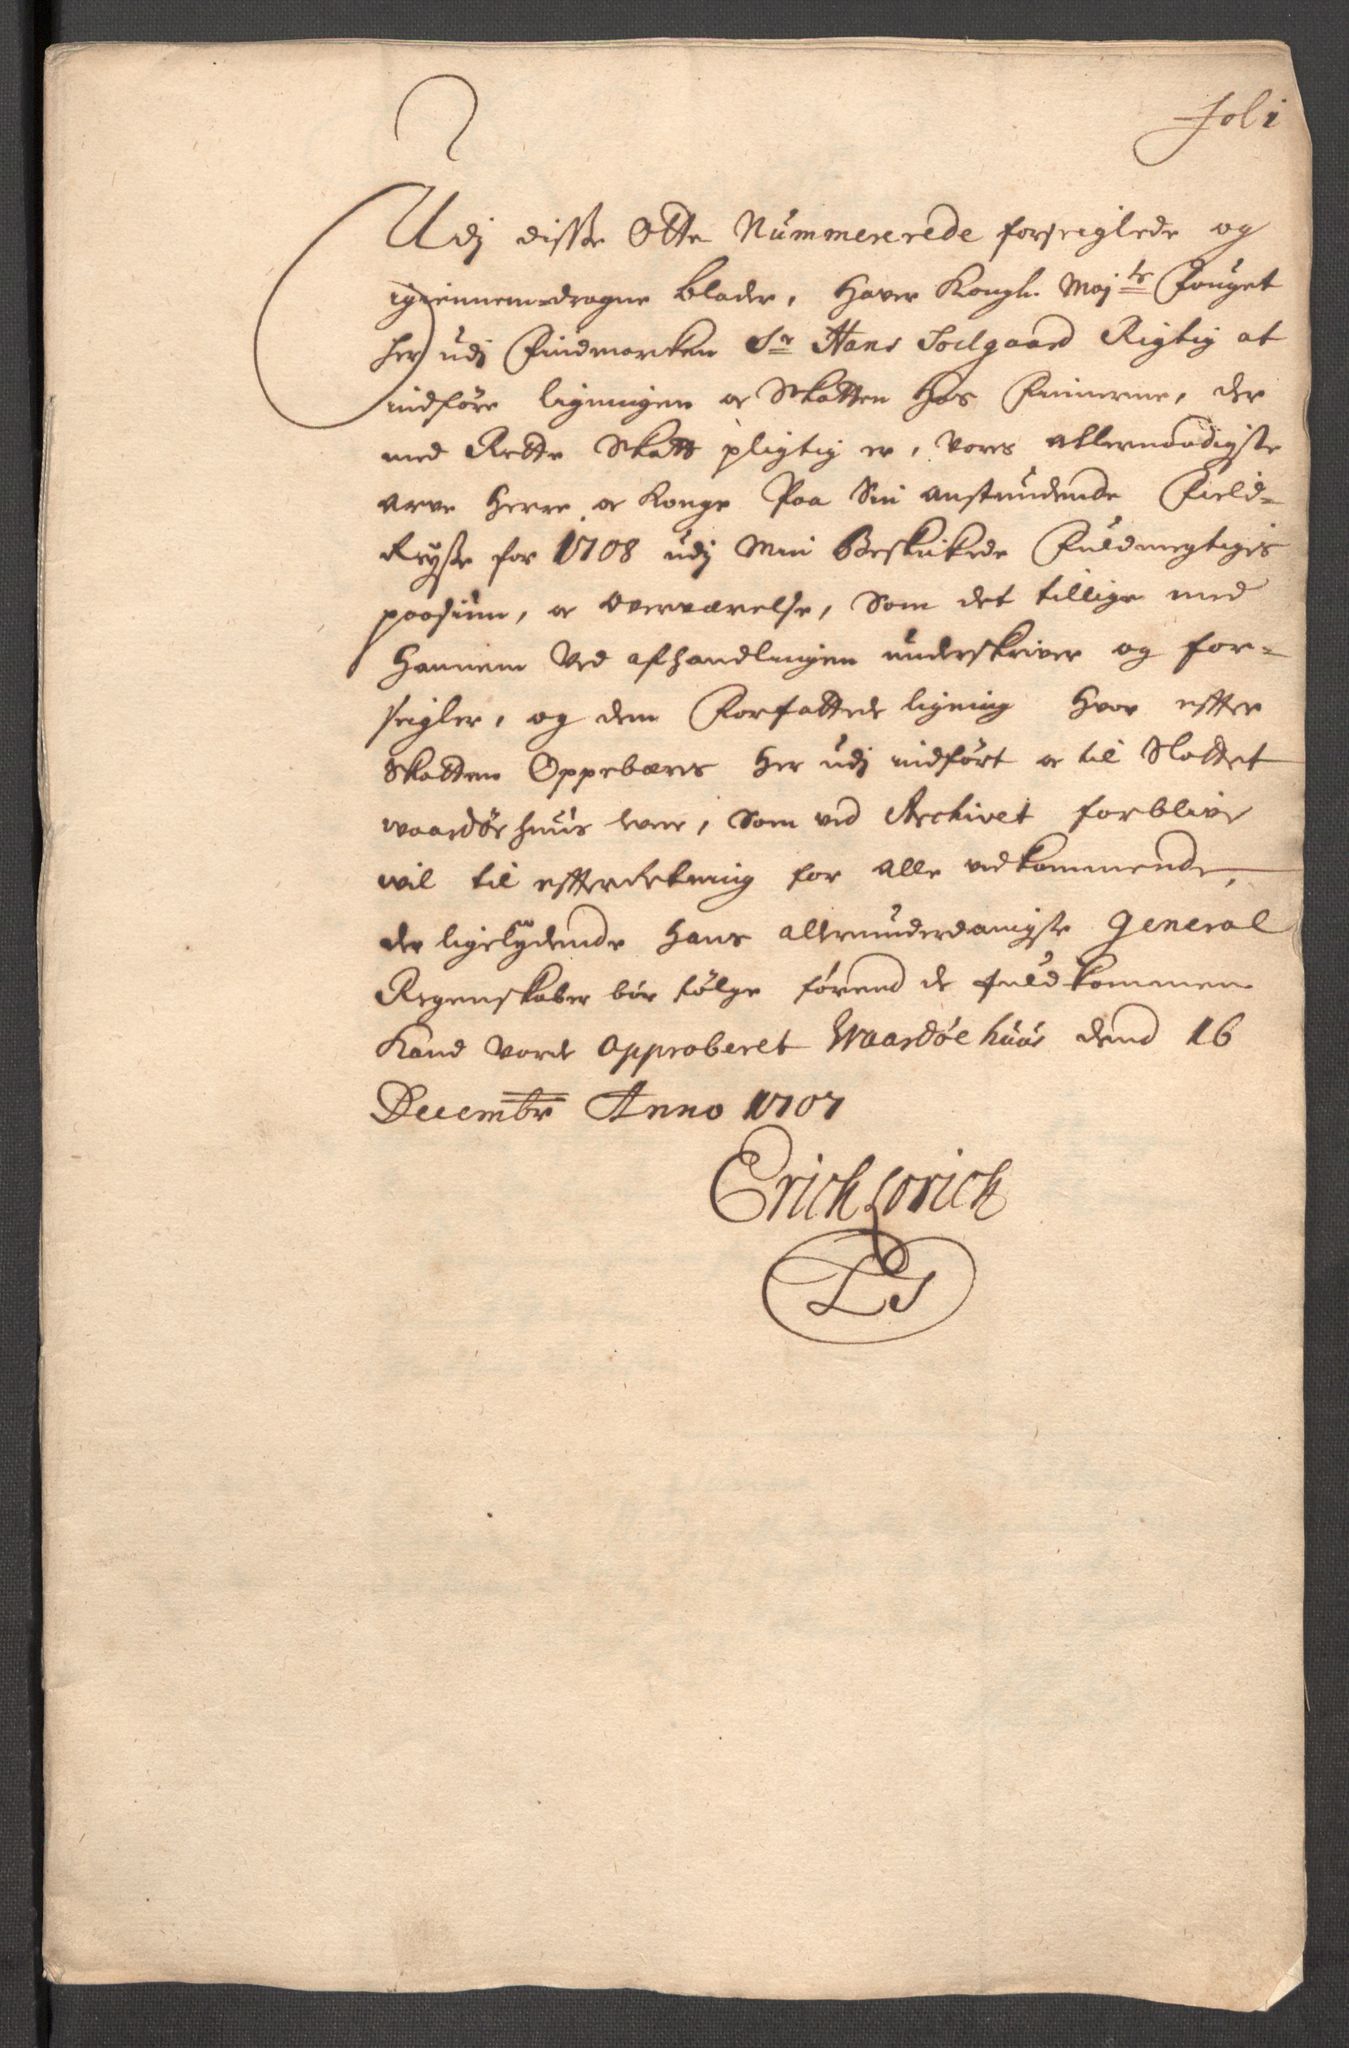 Fol 1
Udj disse Otte Nummererede forseiglede og
igiennem-dragne blader, haver Kongl. Maj.ts Fouget
her udj Findmarken Sr Hans Soelgaard Rigtig at
indføre ligningen oc Skatten hos Finnerne, der
med Rette Skatt pligtig er, Vores allernaadigste
arve Herre oc Konge Paa Sin anstundende Field-
Reyse for 1708 udj Min Beskikede Fuldmegtiges
oc Overværelse, Som det tillige med
hannem Ved afhandlingen underskriver og for-
seigler, og dem Forfattede ligning hvor efter
Skatten Oppebæres her udj indført oc til Slottet
waardøehuus levere, Som ved Archivet forblive
wil til efterretning for alle vedkommende,
der ligelydende hans allerunderdanigste General
Regenskaber bør følge førend de fuldkommen
Kand vorde approberet Waardøehuus dend 16
Decembr Anno 1707
Erich Lorich
LS